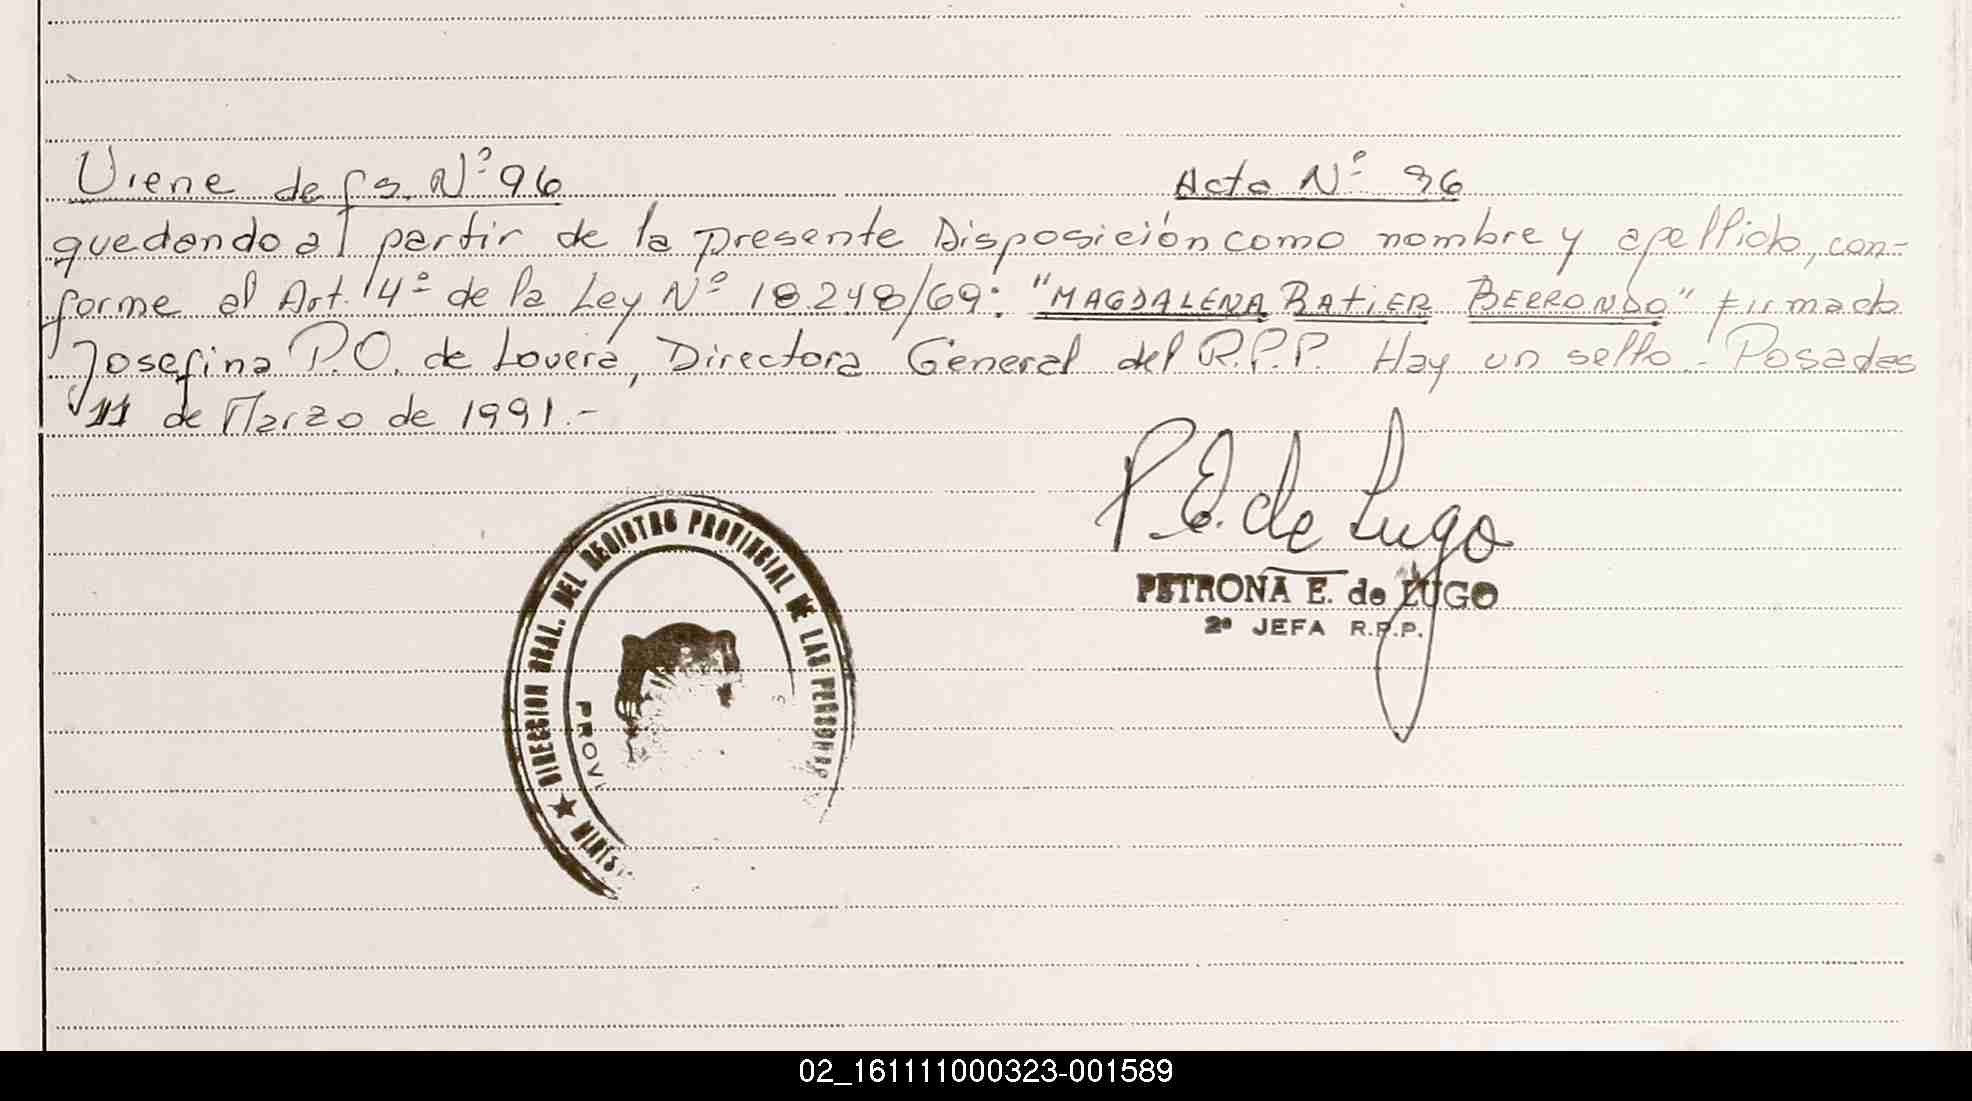 Viene de fs. Nº 96 Acta Nº 96
quedando al partir de la presente Disposición como nombre y apellido, con-
forme al Art. 4º de la Ley Nº 18.248/69: "MAGDALENA BATIER BERRONDO" Firmado
Josefina P.O. de Lovera, Directora General del R.P.P. Hay un sello.- Posadas
11 de Marzo de 1991.-
P. E. de Lugo
PETRONA E. de LUGO
2º JEFA R.P.P.
DIRECCION GRAL. DEL REGISTRO PROVINCIAL DE LAS PERSONAS
PROVI
MINIS
02_161111000323-001589